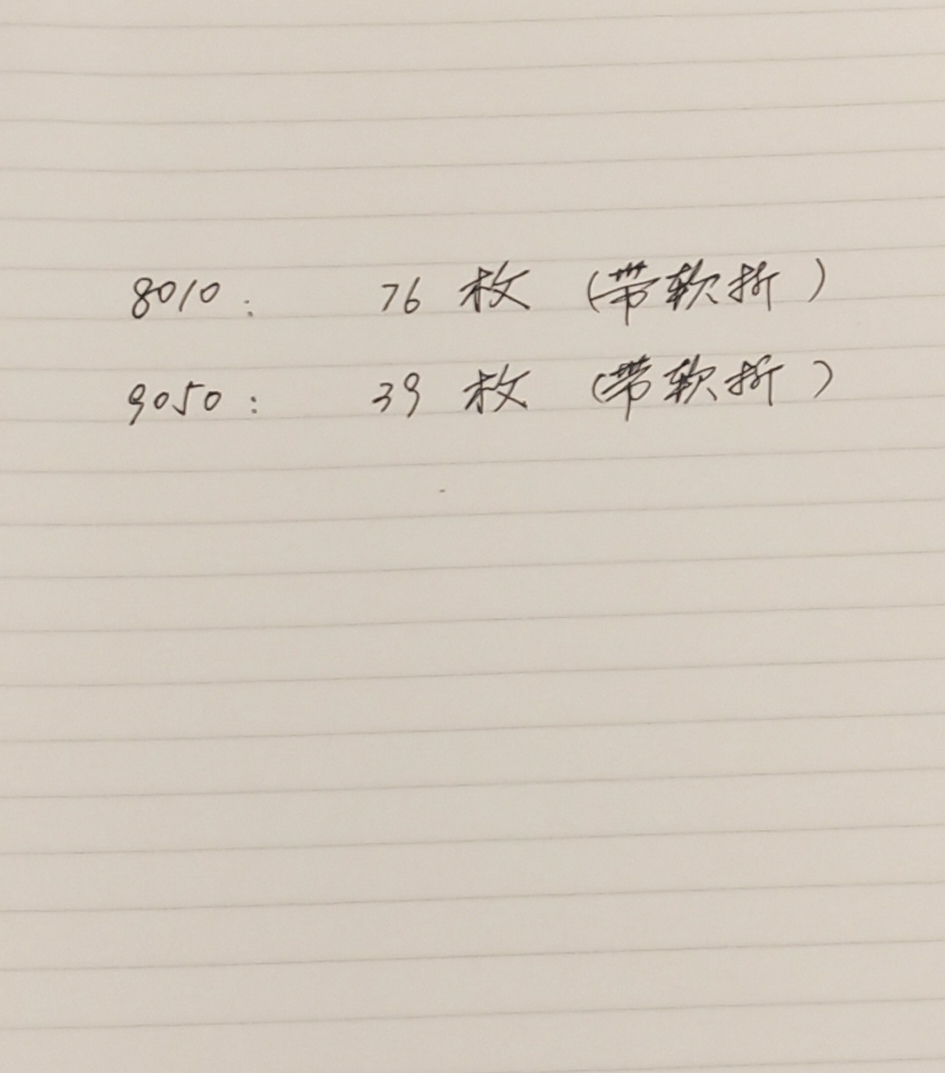 8010: 76 枚 (带软折)
9050: 39 枚 (带软折)